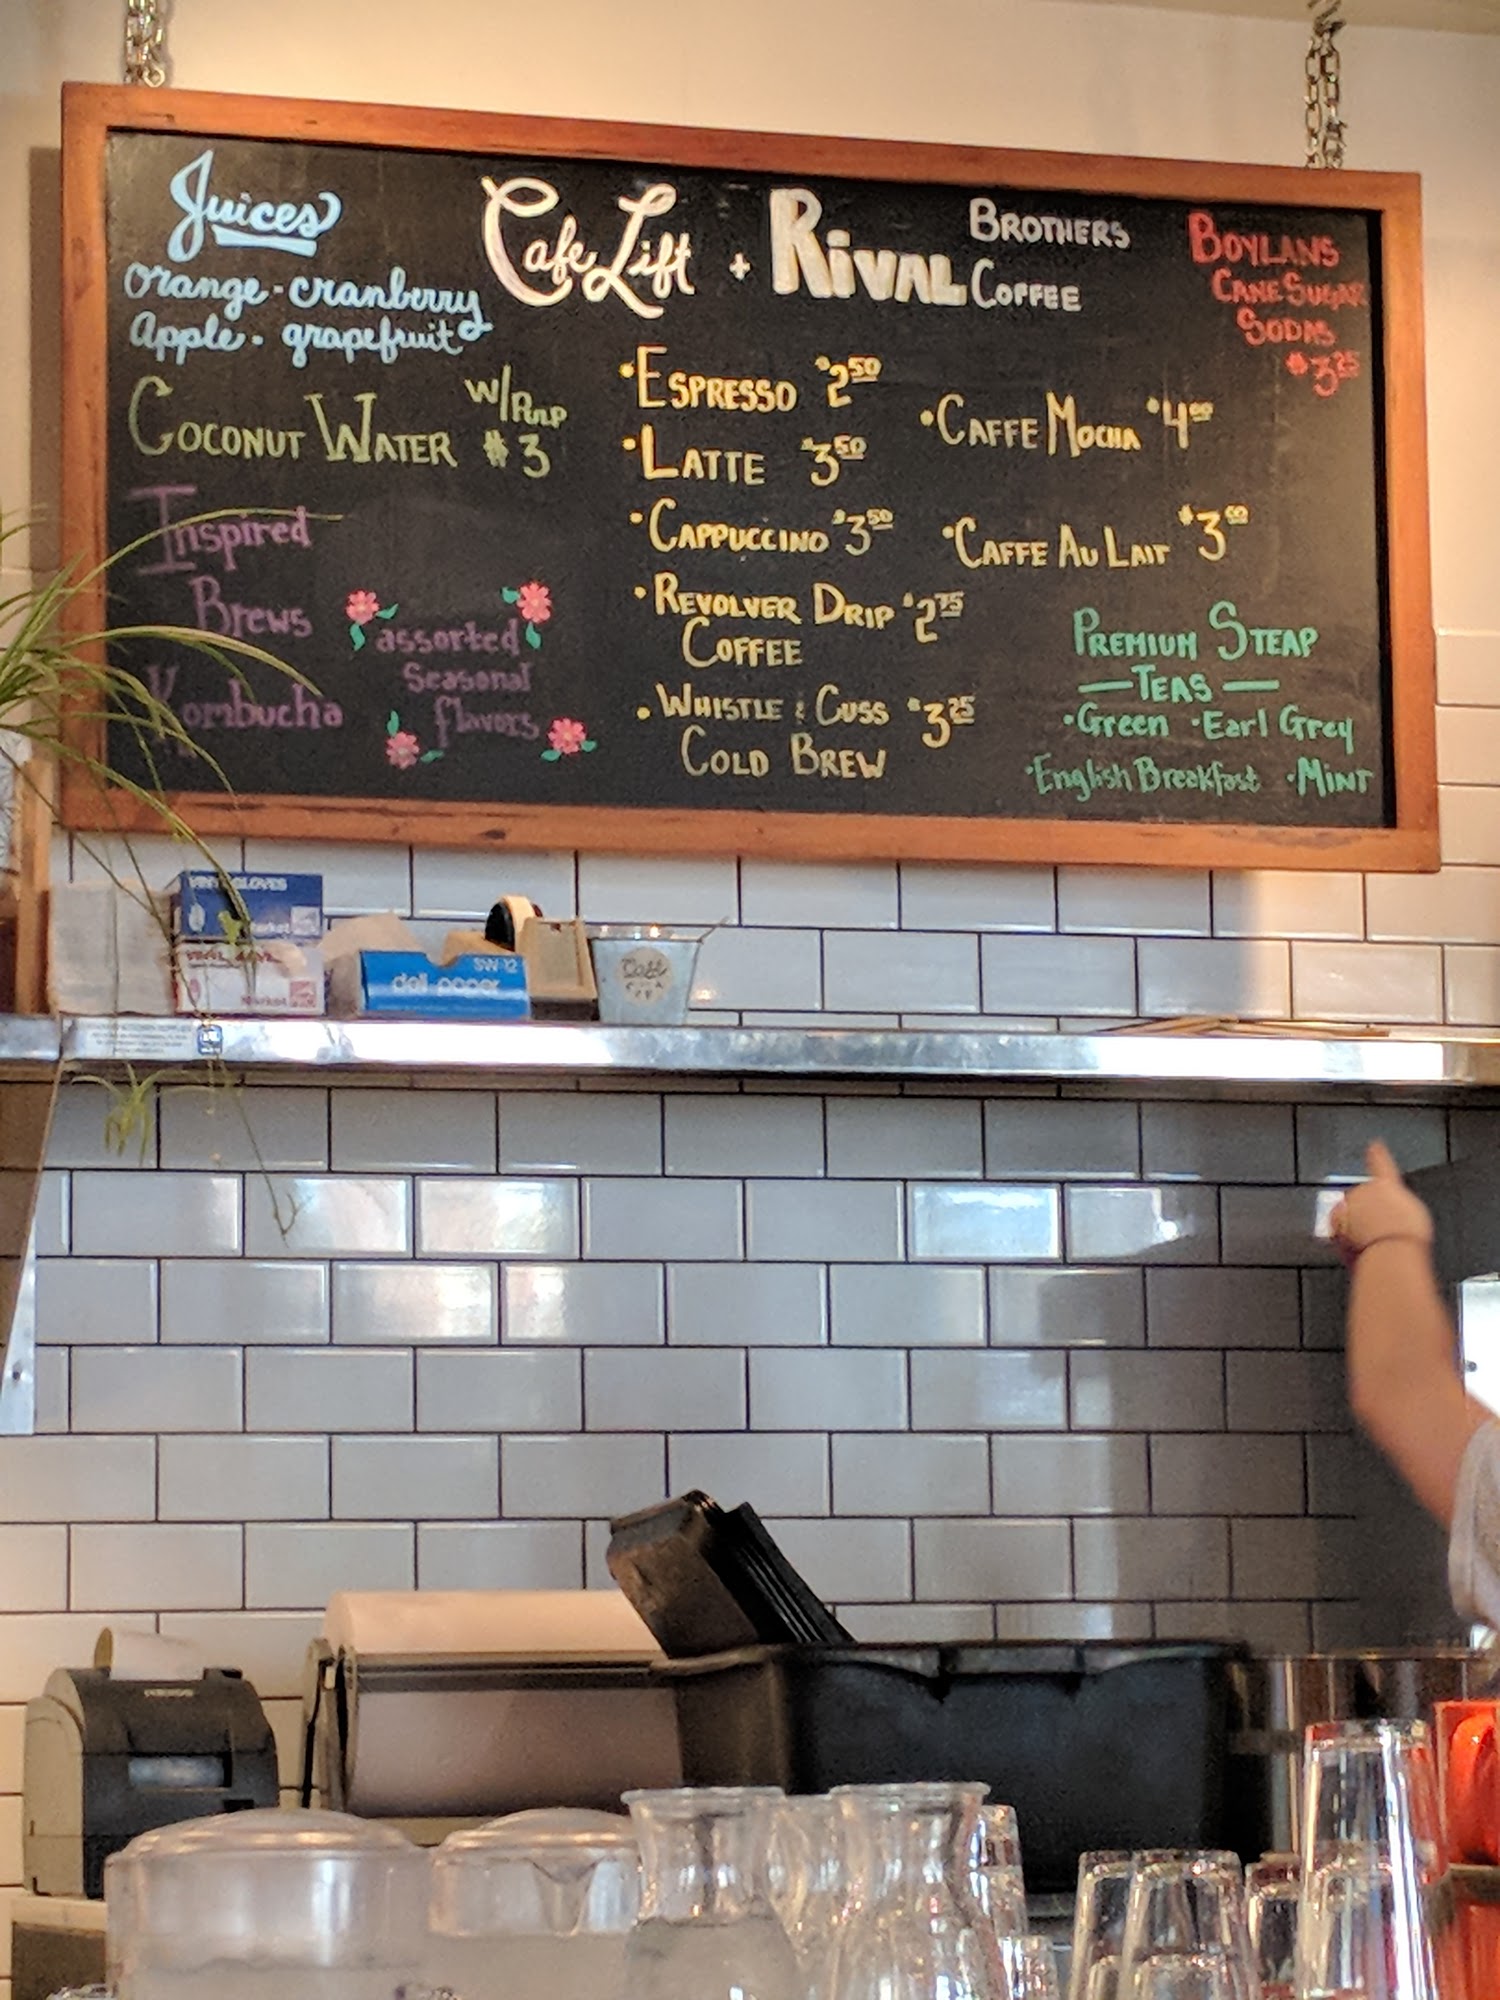 Juices
Orange - cranberry
Apple - grapefruit
Coconut Water w/Pulp $3
Inspired
Brews
Kombucha
assorted
Seasonal
flavors
Cafe Lift + Rival Brothers Coffee
• Espresso $2 50
• Latte $3 50
• Cappuccino $3 50
• Revolver Drip $2 75
Coffee
• Whistle & Cuss $3 25
Cold Brew
Boylans
Cane Sugar
Sodas
$3 25
• Caffe Mocha $4 00
• Caffe Au Lait $3 00
Premium Steap
— Teas —
• Green • Earl Grey
• English Breakfast • Mint
VINYL GLOVES
Market
Market
SW-12
deli paper
Café